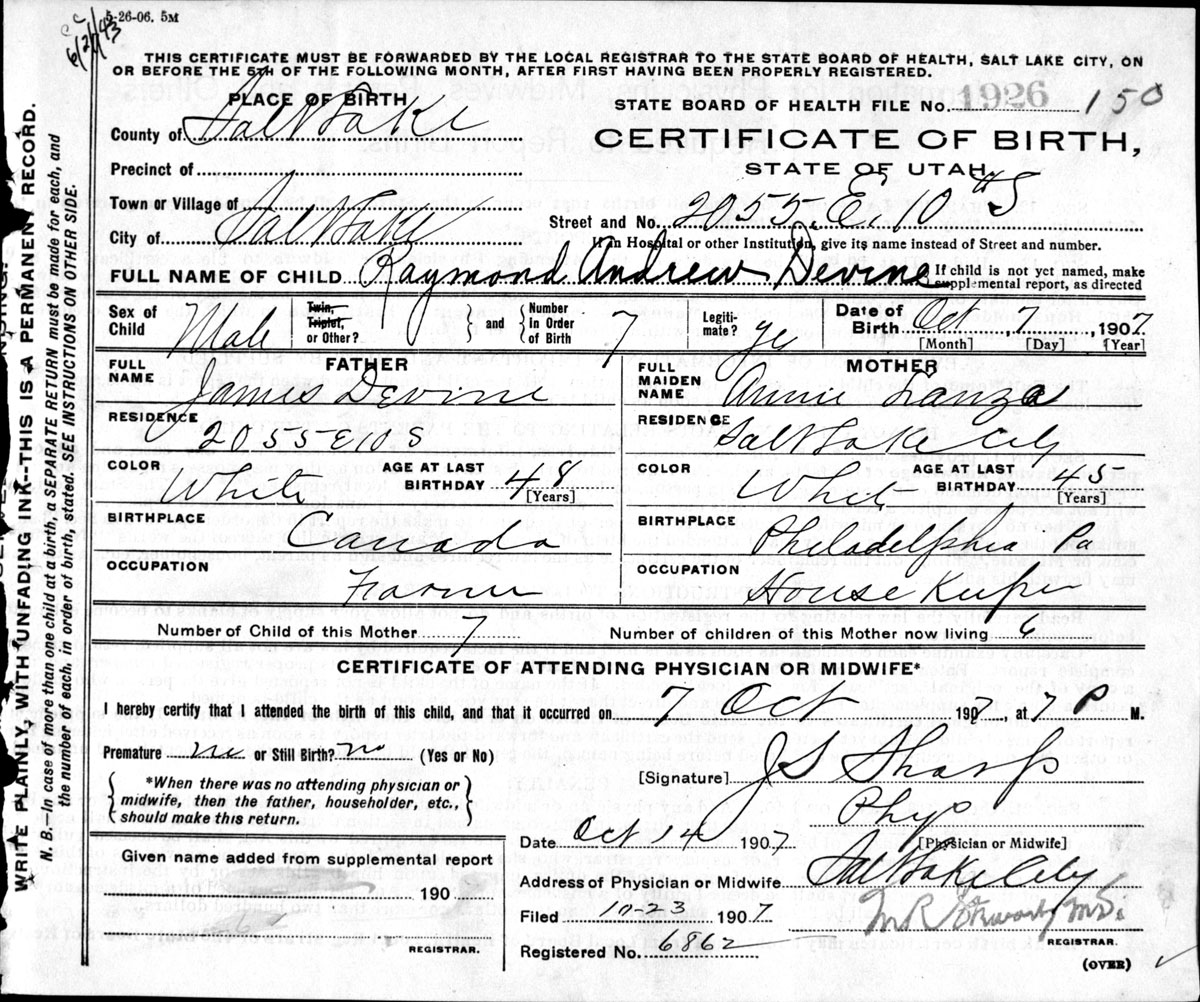 5-26-06. 5M
6/21/43
THIS CERTIFICATE MUST BE FORWARDED BY THE LOCAL REGISTRAR TO THE STATE BOARD OF HEALTH, SALT LAKE CITY, ON
OR BEFORE THE 5TH OF THE FOLLOWING MONTH, AFTER FIRST HAVING BEEN PROPERLY REGISTERED.
PLACE OF BIRTH
STATE BOARD OF HEALTH FILE No. 1926 150
County of Salt Lake
CERTIFICATE OF BIRTH,
STATE OF UTAH
Precinct of
Town or Village of
Street and No. 2055 E. 10th S
City of Salt Lake
If in Hospital or other Institution, give its name instead of Street and number.
FULL NAME OF CHILD Raymond Andrew Devine { If child is not yet named, make
supplemental report, as directed
Sex of Child Male
Twin, Triplet, or Other? } and { Number in Order of Birth 7
Legiti-mate? ye
Date of Birth Oct 7, 1907
[Month] [Day] [Year]
FATHER
FULL NAME James Devine
MOTHER
FULL MAIDEN NAME Annie
RESIDENCE 2055 E 10 S
RESIDENCE Salt Lake City
COLOR White AGE AT LAST BIRTHDAY 48 [Years]
COLOR Whit AGE AT LAST BIRTHDAY 45 [Years]
BIRTHPLACE Canada
BIRTHPLACE Philadelphia Pa
OCCUPATION Farmer
OCCUPATION House Keeper
Number of Child of this Mother 7 Number of children of this Mother now living 6
CERTIFICATE OF ATTENDING PHYSICIAN OR MIDWIFE*
I hereby certify that I attended the birth of this child, and that it occurred on 7 Oct 1907, at P M.
Premature no or Still Birth? no (Yes or No)
[Signature] J S Sharp
{ *When there was no attending physician or
midwife, then the father, householder, etc.,
should make this return. }
Phys
[Physician or Midwife]
Date Oct 14 1907
Given name added from supplemental report
Address of Physician or Midwife Salt Lake City
190
Filed 10-23 1907
REGISTRAR.
M R Stewart M.D.
REGISTRAR.
Registered No. 6862
(OVER)
WRITE PLAINLY, WITH UNFADING INK--THIS IS A PERMANENT RECORD.
N. B.—In case of more than one child at a birth, a SEPARATE RETURN must be made for each, and
the number of each, in order of birth, stated. SEE INSTRUCTIONS ON OTHER SIDE.